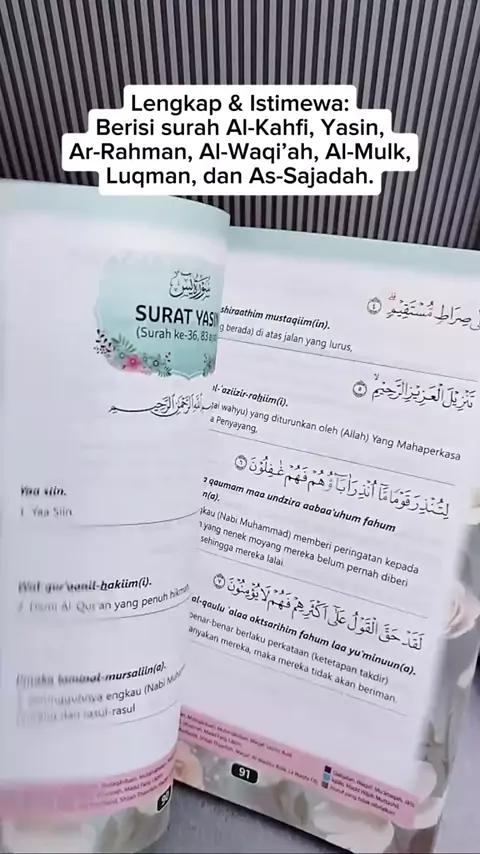 Lengkap & Istimewa:
Berisi surah Al-Kahfi, Yasin,
Ar-Rahman, Al-Waqi’ah, Al-Mulk,
Luqman, dan As-Sajadah.
SURAT YASI
(Surah ke-36, 83
Yaa siin.
1. Yaa Siin.
Wal qur'aanil-hakiim(i).
2. Demi Al-Qur'an yang penuh hikmah
laminal-mursaliin(a).
engkau (Nabi
dari rasul-rasul
90
صِرَاطٍ مُّسْتَقِيْمٍۗ ٤
shiraathim mustaqiim(in).
berada) di atas jalan yang lurus,
تَنْزِيْلَ الْعَزِيْزِ الرَّحِيْمِۙ ٥
'aziizir-rahiim(i).
wahyu) yang diturunkan oleh (Allah) Yang Mahaperkasa
Penyayang,
لِتُنْذِرَ قَوْمًا مَّآ اُنْذِرَ اٰبَاۤؤُهُمْ فَهُمْ غٰفِلُوْنَ ٦
qaumam maa undzira aabaa'uhum fahum
n(a).
kau (Nabi Muhammad) memberi peringatan kepada
yang nenek moyang mereka belum pernah diberi
sehingga mereka lalai.
لَقَدْ حَقَّ الْقَوْلُ عَلٰٓى اَكْثَرِهِمْ فَهُمْ لَا يُؤْمِنُوْنَ ٧
al-qaulu 'alaa aktsarihim fahum laa yu'minuun(a).
benar-benar berlaku perkataan (ketetapan takdir)
anyakan mereka, maka mereka tidak akan beriman.
91